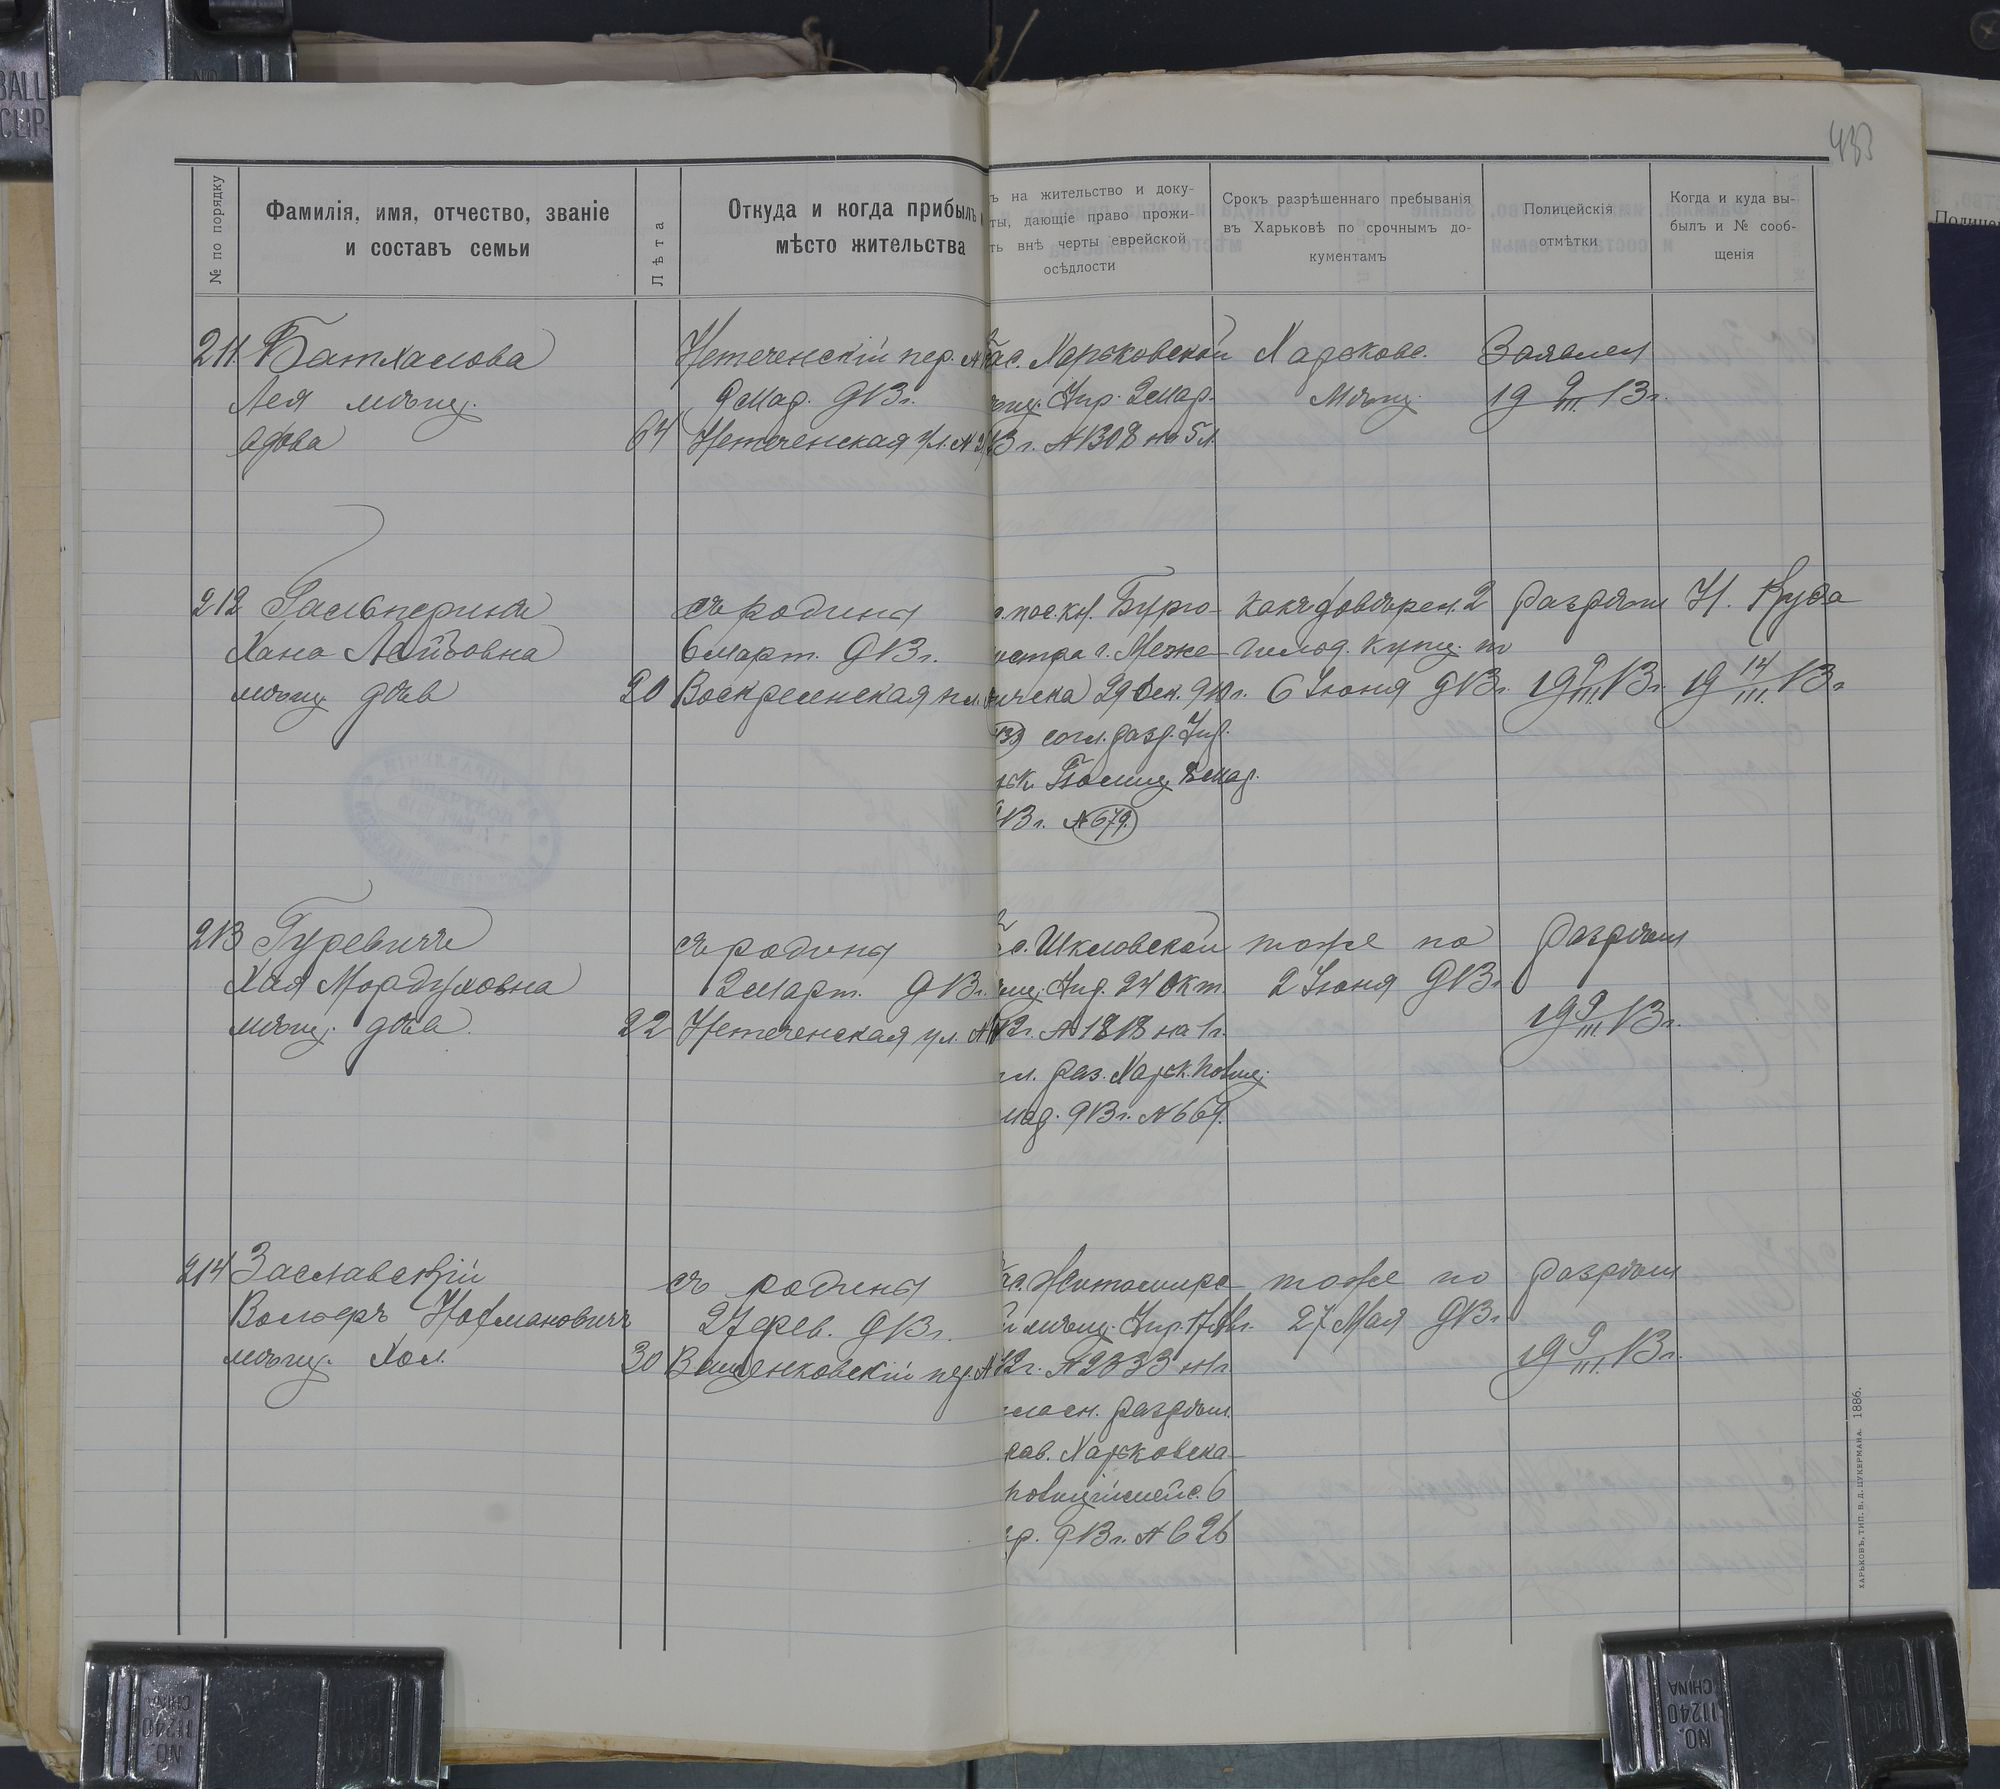 433
№ по порядку
Фамилія, имя, отчество, званіе
и составъ семьи
Лѣта
Откуда и когда прибылъ
мѣсто жительства
ъ на жительство и доку-
ты, дающіе право прожи-
ть внѣ черты еврейской
осѣдлости
Срокъ разрѣшеннаго пребыванія
въ Харьковѣ по срочнымъ до-
кументамъ
Полицейскія
отмѣтки
Когда и куда вы-
былъ и № сооб-
щенія
211. Батхасова
Лея мѣщ.
вдова
64
Нетеченскій пер. №
9 мар. 913 г.
Нетеченская ул. №
Харьковской
мѣщ. Упр. 2 мар.
13 г. № 1308 на 5 л.
Харьковс.
Мѣщ.
Заявлен
19 9/III 13 г.
212 Гальперинъ
Хана Лейбовна
мѣщ. дѣв
20
съ родины
6 март. 913 г.
Воскресенская пл.
пос. кн. Бурго-
мстра г. Меже-
29 Дек. 910 г.
согл. разр. Упр.
Полиц. 8 мар.
913 г. № 679.
какъ довѣрен. 2
гильд. купц. по
6 Іюня 913 г.
разрѣш
19 9/III 13 г.
Н. Куда
19 14/III 13 г.
213 Гуревичъ
Хая Мордуховна
мѣщ. дѣва.
22
съ родины
2 март. 913 г.
Нетеченская ул. №
Шкловской
мѣщ. Упр. 24 Окт.
12 г. № 1818 на 1 г.
раз. Харьк. Полиц.
мар. 913 г. № 669.
тоже по
2 Іюня 913 г.
разрѣш
19 9/III 13 г.
214 Заславскій
Вольфъ Нафмановичъ
мѣщ. Хол.
30
съ родины
27 фев. 913 г.
Ващенковскій пер. №
Житомирс-
й мѣщ. Упр.
12 г. № 2333 на 1 г.
гласн. разрѣш.
Харьковска-
полицімейс. 6
913 г. № 626
тоже по
27 Мая 913 г.
разрѣш
19 9/III 13 г.
ХАРЬКОВЪ, ТИП. В. Д. ЦУКЕРМАНА. 1886.
BALL
CLIP
NO.
11240
CHINA
NO.
11240
CHINA